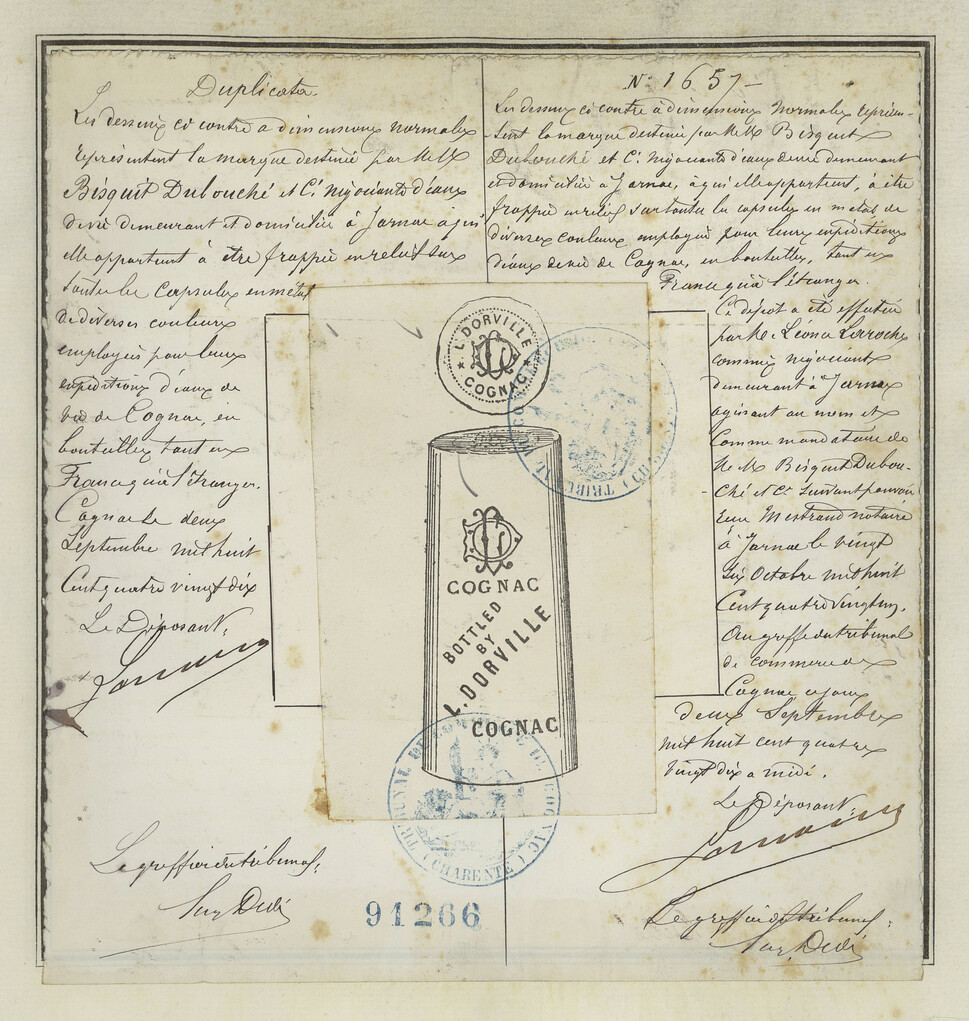 Duplicata
Les dessins ci contre a dimensions normales
représentent la marque destinée par M.M.
Bisquit Dubouché et Cie négociants d'eaux
de vie demeurant et domiciliés à Jarnac à qui
elle appartient à être frappée en relief sur
toutes les capsules en métal
de diverses couleurs
employées pour leurs
expéditions d'eaux de
vie de Cognac, en
bouteilles tant en
France qu'à l'étranger.
Cognac le deux
Septembre mil huit
cent quatre vingt dix
Le Déposant,
Le greffier du tribunal,
L. DORVILLE
COGNAC
COGNAC
BOTTLED
BY
L. DORVILLE
COGNAC
TRIBUNAL
TRIBUNAL DE COMMERCE DE COGNAC
(CHARENTE)
91266
No 1657
Les dessins ci contre à dimensions normales représen-
-sent la marque destinée par M.M. Bisquit
Dubouché et Cie négociants d'eaux de vie demeurant
et domiciliés à Jarnac, à qui elle appartient, à être
frappée en relief sur toutes les capsules en métal de
diverses couleurs employées pour leurs expéditions
d'eaux de vie de Cognac, en bouteilles, tant en
France qu'à l'étranger.
Ce dépôt a été effectué
par M. Léonce Laroche
commis négociant
demeurant à Jarnac
agissant au nom et
comme mandataire de
M.M. Bisquit Dubou-
-ché et Cie suivant pouvoir
notaire
à Jarnac le vingt
six Octobre mil huit
cent quatre vingt
Au greffe du tribunal
de commerce de
Cognac ce jour
deux Septembre
mil huit cent quatre
vingt dix a midi.
Le Déposant,
Le greffier du tribunal,